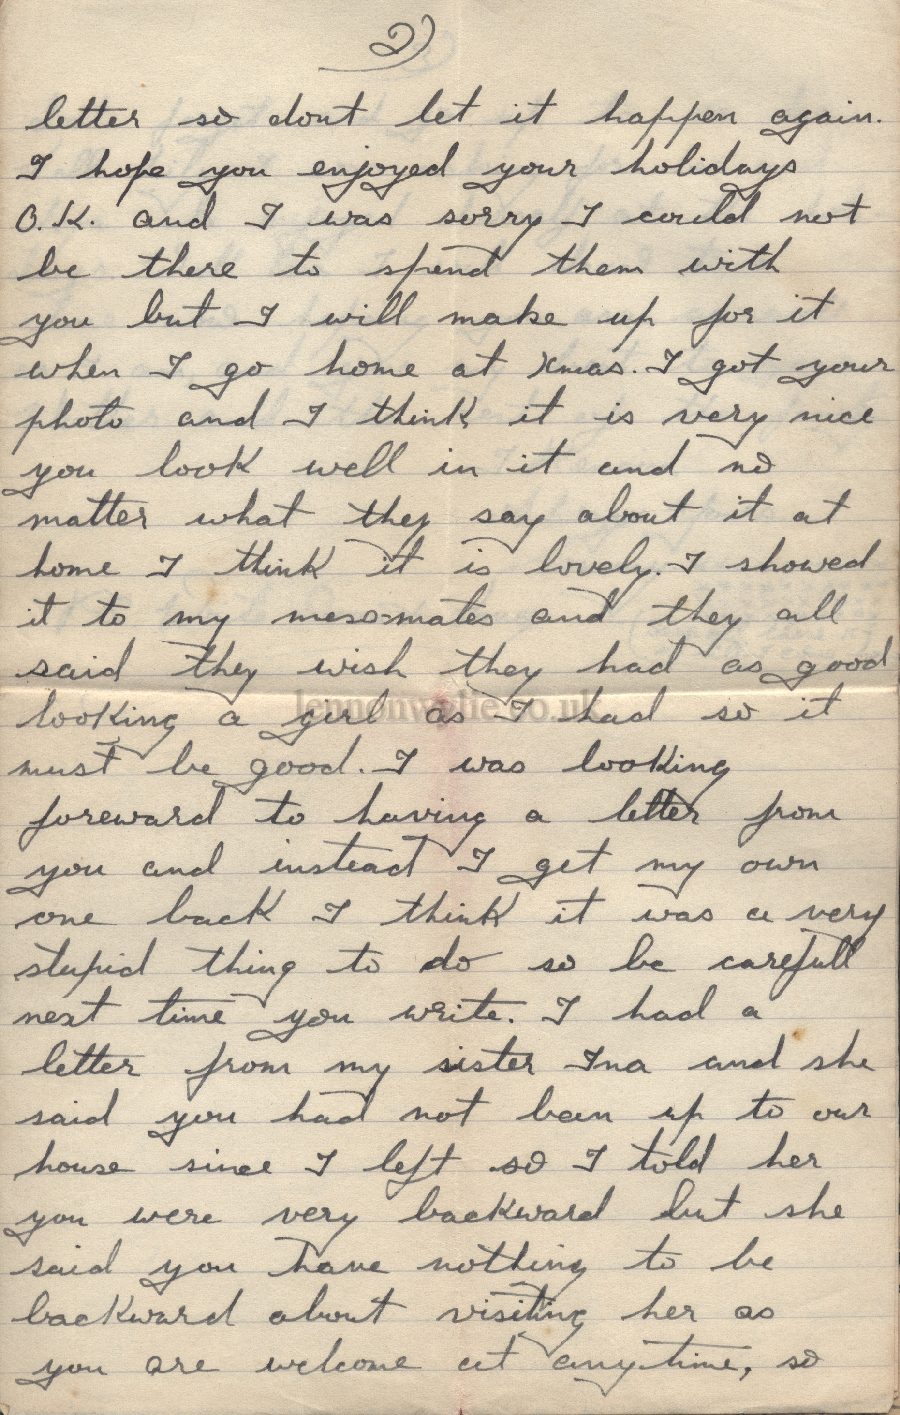 2)
letter so dont let it happen again.
I hope you enjoyed your holidays
O.K. and I was sorry I could not
be there to spend them with
you but I will make up for it
when I go home at Xmas. I got your
photo and I think it is very nice
you look well in it and no
matter what they say about it at
home I think it is lovely. I showed
it to my mess-mates and they all
said they wish they had as good
lennonwylie.co.uk
looking a girl as I had so it
must be good. I was looking
foreward to having a letter from
you and instead I get my own
one back I think it was a very
stupid thing to do so be carefull
next time you write. I had a
letter from my sister Ina and she
said you had not been up to our
house since I left so I told her
you were very backward but she
said you have nothing to be
backward about visiting her as
you are welcome at anytime, so